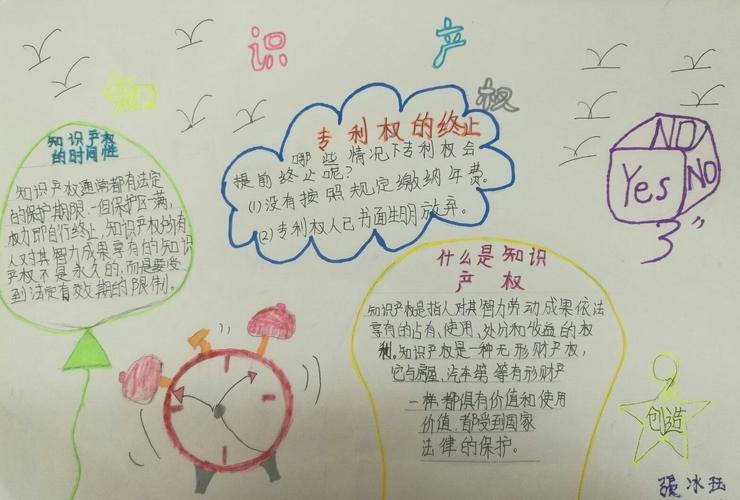 知识产权
知识产权
的时间性
知识产权通常都有法定
的保护期限,一但保护区满,
权力即自行终止,知识产权所有
人对其智力成果享有的知识
产权不是永久的,而是要受
到法定有效期的限制。
专利权的终止
哪些情况下专利权会
提前终止呢?
(1)没有按照规定缴纳年费。
(2)专利权人已书面生明放弃。
NO
Yes NO
什么是知识
产权
知识产权是指人对其智力劳动成果依法
享有的占有、使用、处分和收益的权
利。知识产权是一种无形财产权,
它与房屋、汽车第等有形财产
一样都俱有价值和使用
价值,都受到国家
法律的保护。
创造
张冰